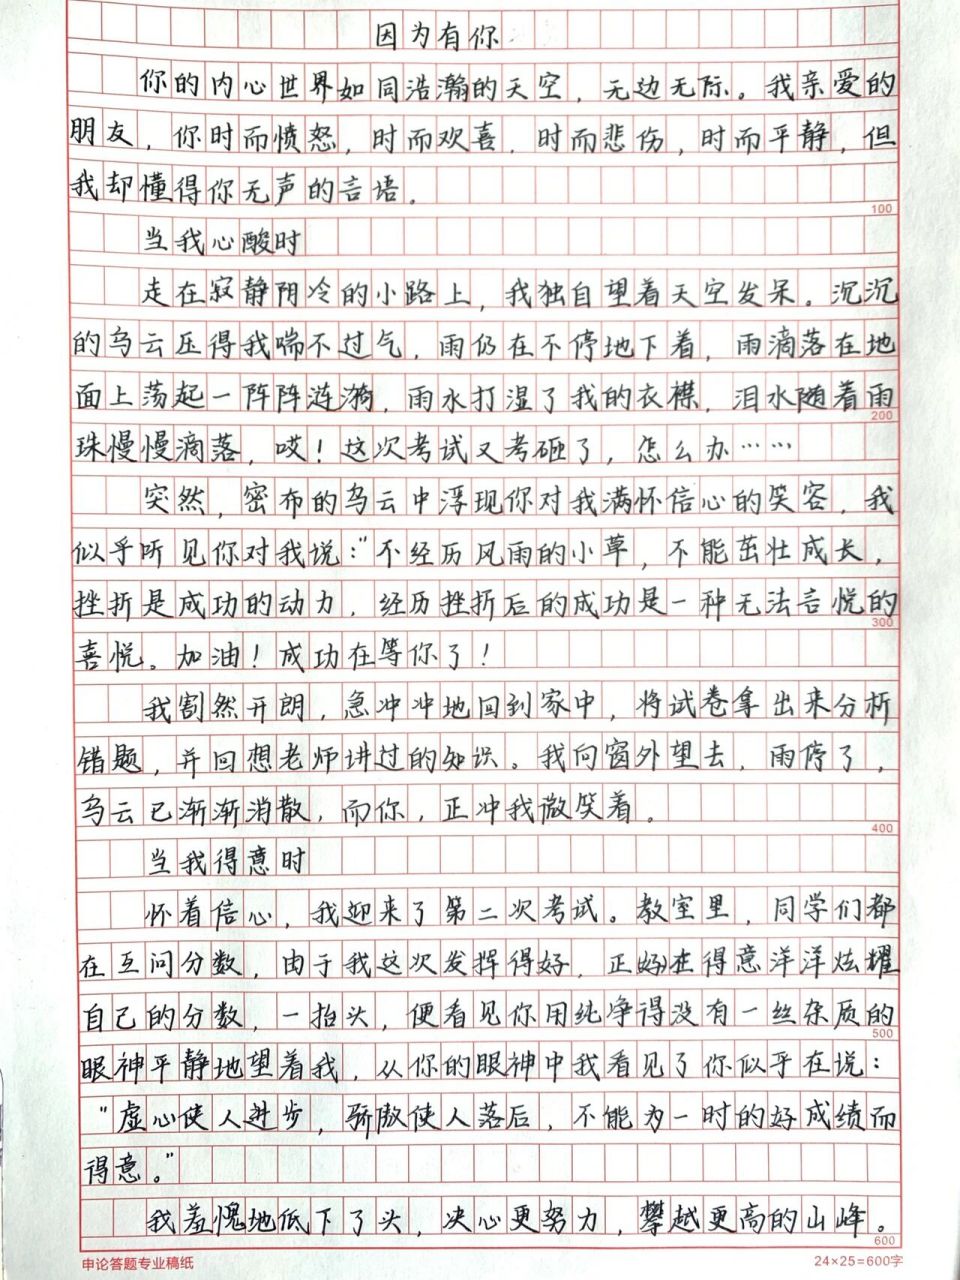 因为有你
你的内心世界如同浩瀚的天空，无边无际。我亲爱的
朋友，你时而愤怒，时而欢喜，时而悲伤，时而平静，但
我却懂得你无声的言语。
100
当我心酸时
走在寂静阴冷的小路上，我独自望着天空发呆。沉沉
的乌云压得我喘不过气，雨仍在不停地下着，雨滴落在地
面上荡起一阵阵涟漪，雨水打湿了我的衣襟，泪水随着雨
200
珠慢慢滴落，哎！这次考试又考砸了，怎么办……
突然，密布的乌云中浮现你对我满怀信心的笑容，我
似乎听见你对我说：“不经历风雨的小草，不能茁壮成长，
挫折是成功的动力，经历挫折后的成功是一种无法言悦的
300
喜悦。加油！成功在等你了！
我割然开朗，急冲冲地回到家中，将试卷拿出来分析
错题，并回想老师讲过的知识。我向窗外望去，雨停了，
乌云已渐渐消散，而你，正冲我微笑着。
400
当我得意时
怀着信心，我迎来了第二次考试。教室里，同学们都
在互问分数，由于我这次发挥得好，正好在得意洋洋炫耀
自己的分数，一抬头，便看见你用纯净得没有一丝杂质的
500
眼神平静地望着我，从你的眼神中我看见了你似乎在说：
“虚心使人进步，骄傲使人落后，不能为一时的好成绩而
得意。”
我羞愧地低下了头，决心更努力，攀越更高的山峰。
600
申论答题专业稿纸
24×25=600字